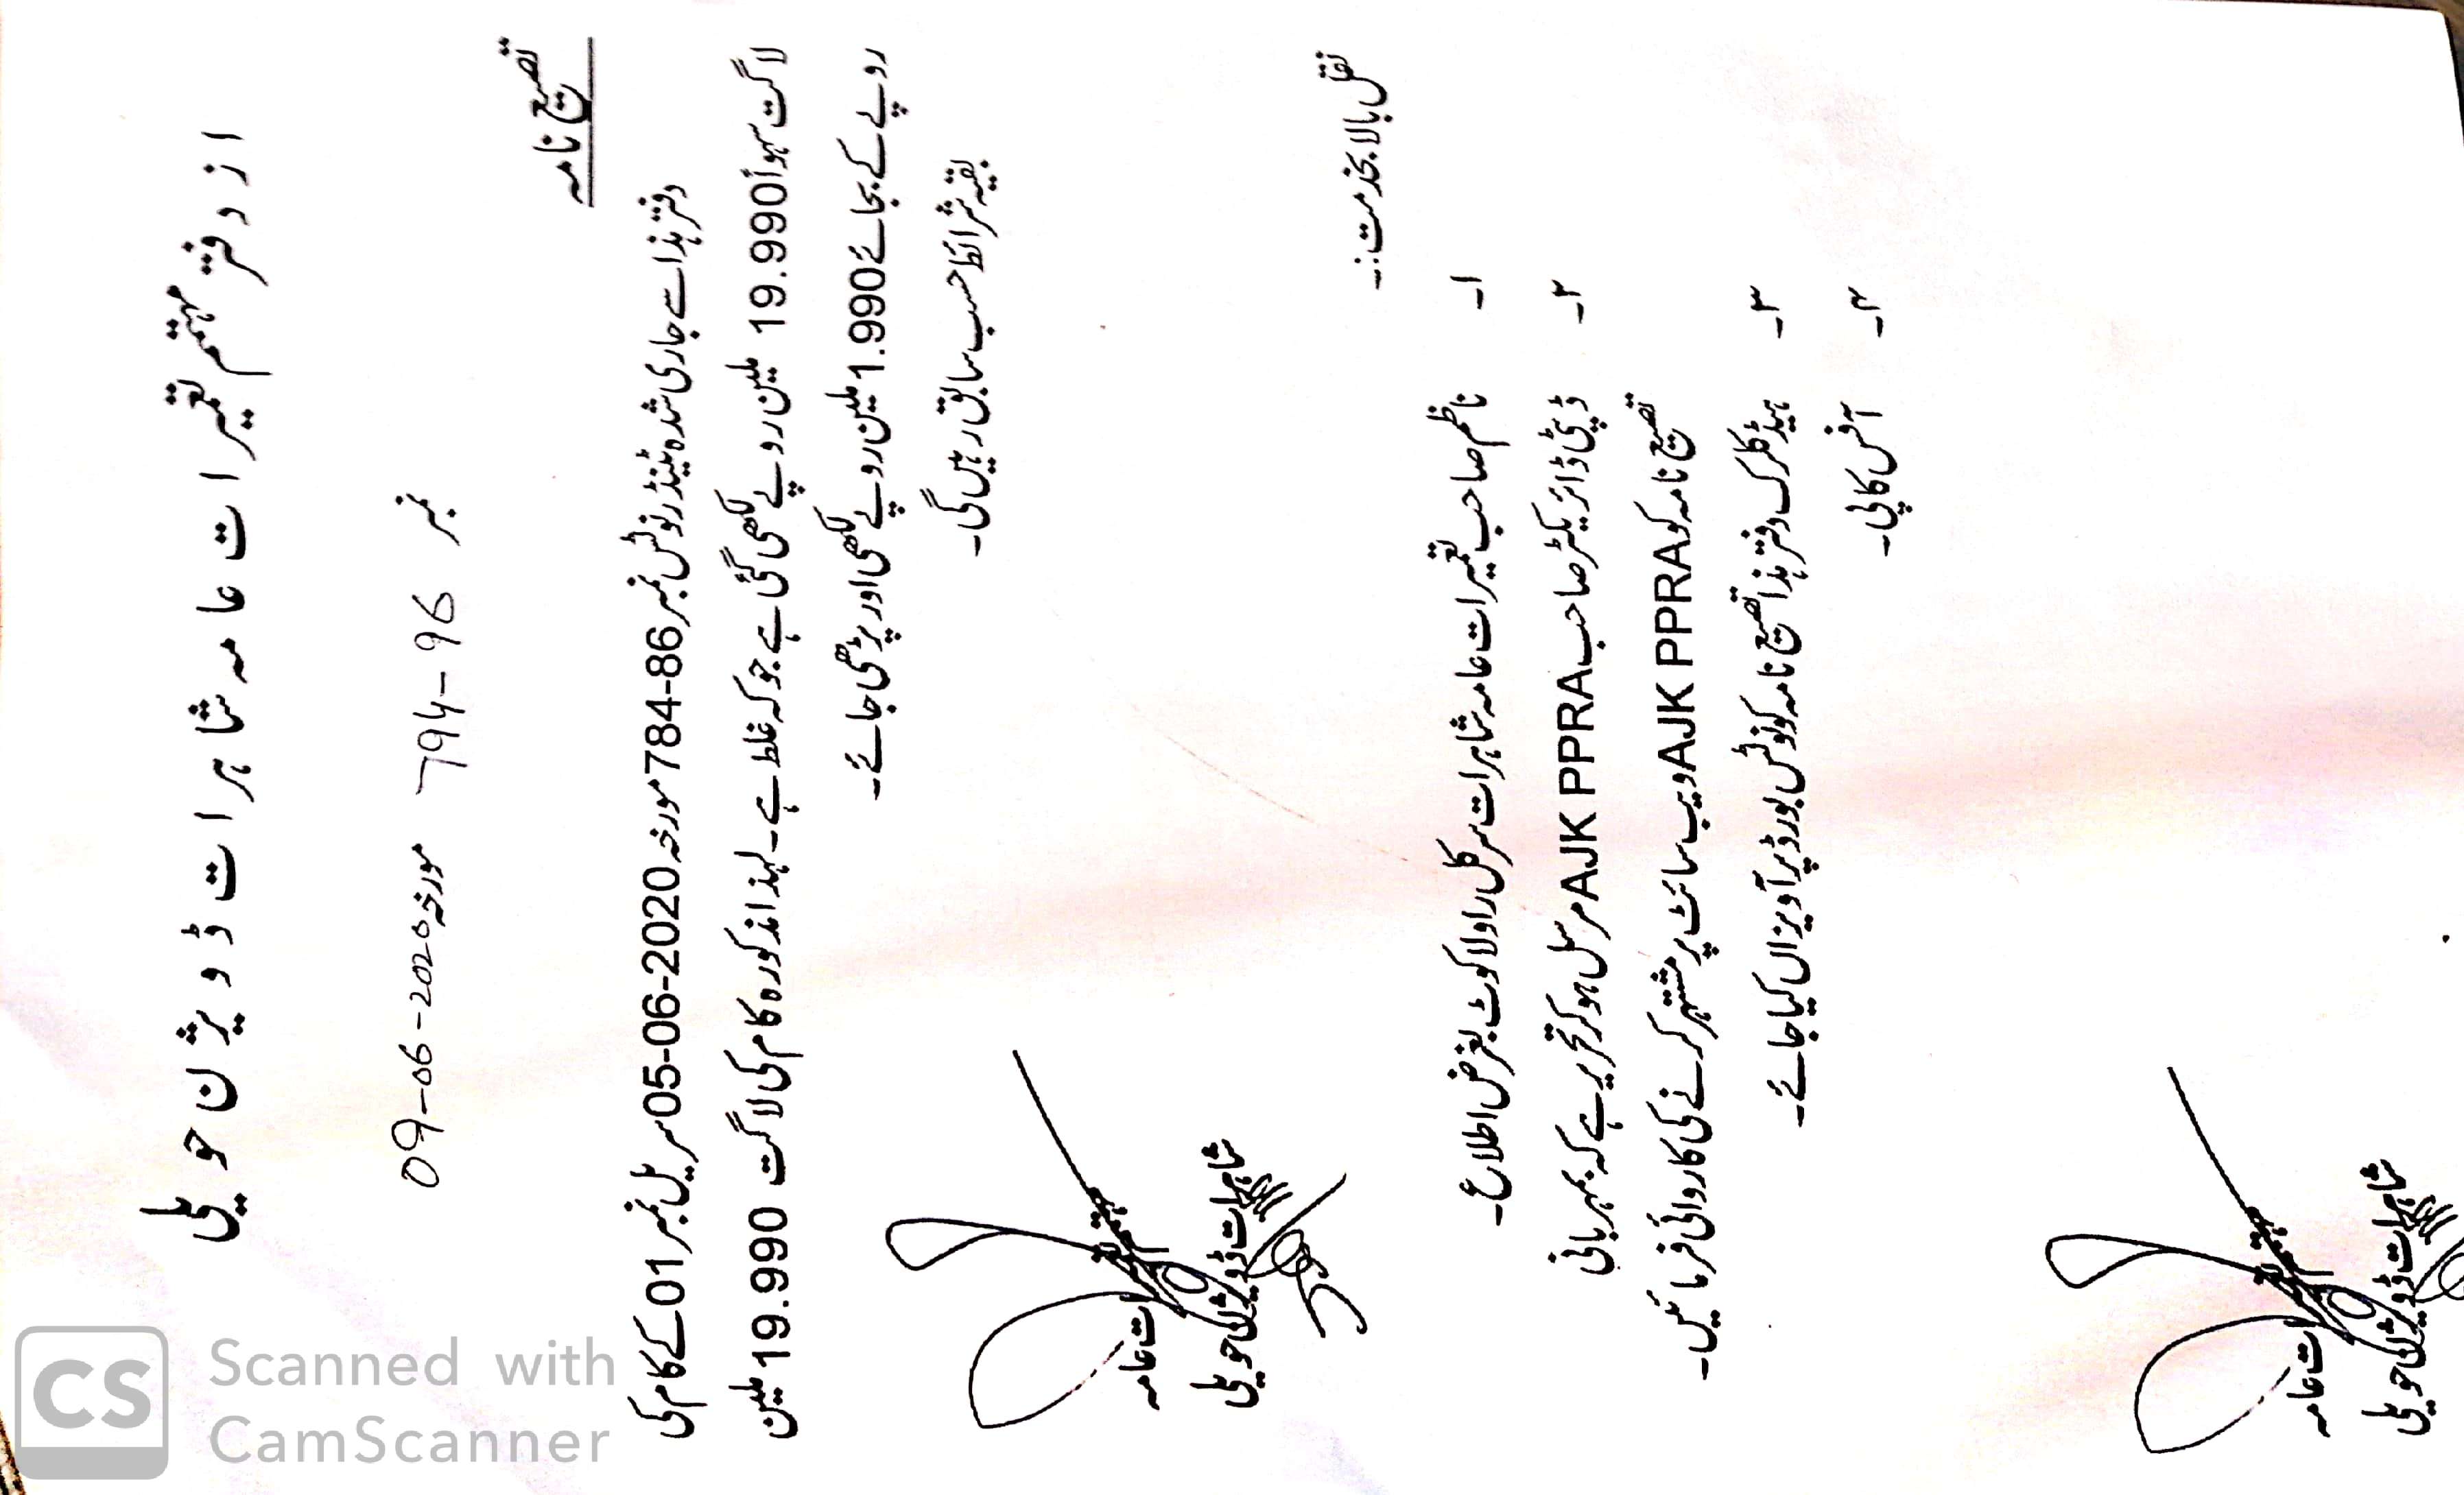 از دفتر مہتمم تعمیرات عامہ شاہرات ڈویژن حویلی
نمبر 794-96 مورخہ 09-06-2020
تصیح نامہ
دفتر ہذا سے جاری شدہ ٹینڈر نوٹس نمبر 784-86 مورخہ 05-06-2020 سریل نمبر 01 کے کام کی
لاگت سہواً 19.990 ملین روپے لکھی گئی ہے جو کہ غلط ہے۔ لہذا مذکورہ کام کی لاگت 19.990 ملین
روپے کے بجائے 1.990 ملین روپے لکھی اور پڑھی جائے۔
بقیہ شرائط حسب سابق رہیں گی۔
مہتمم تعمیرات عامہ
شاہرات ڈویژن حویلی
نقل بالا بخدمت:۔
۱۔ ناظم صاحب تعمیرات عامہ شاہرات سرکل راولاکوٹ بغرض اطلاع۔
۲۔ ڈپٹی ڈائریکٹر صاحب AJK PPRA مرسل ہو کر تحریر ہے کہ بمہربانی
تصیح نامہ کو AJK PPRA ویب سائٹ پر مشتہر کرنے کی کاروائی فرمائیں۔
۳۔ ہیڈ کلرک دفتر ہذا تصیح نامہ کو نوٹس بورڈ پر آویزاں کیا جائے۔
۴۔ آفس کاپی۔
مہتمم تعمیرات عامہ
شاہرات ڈویژن حویلی
CS Scanned with
CamScanner